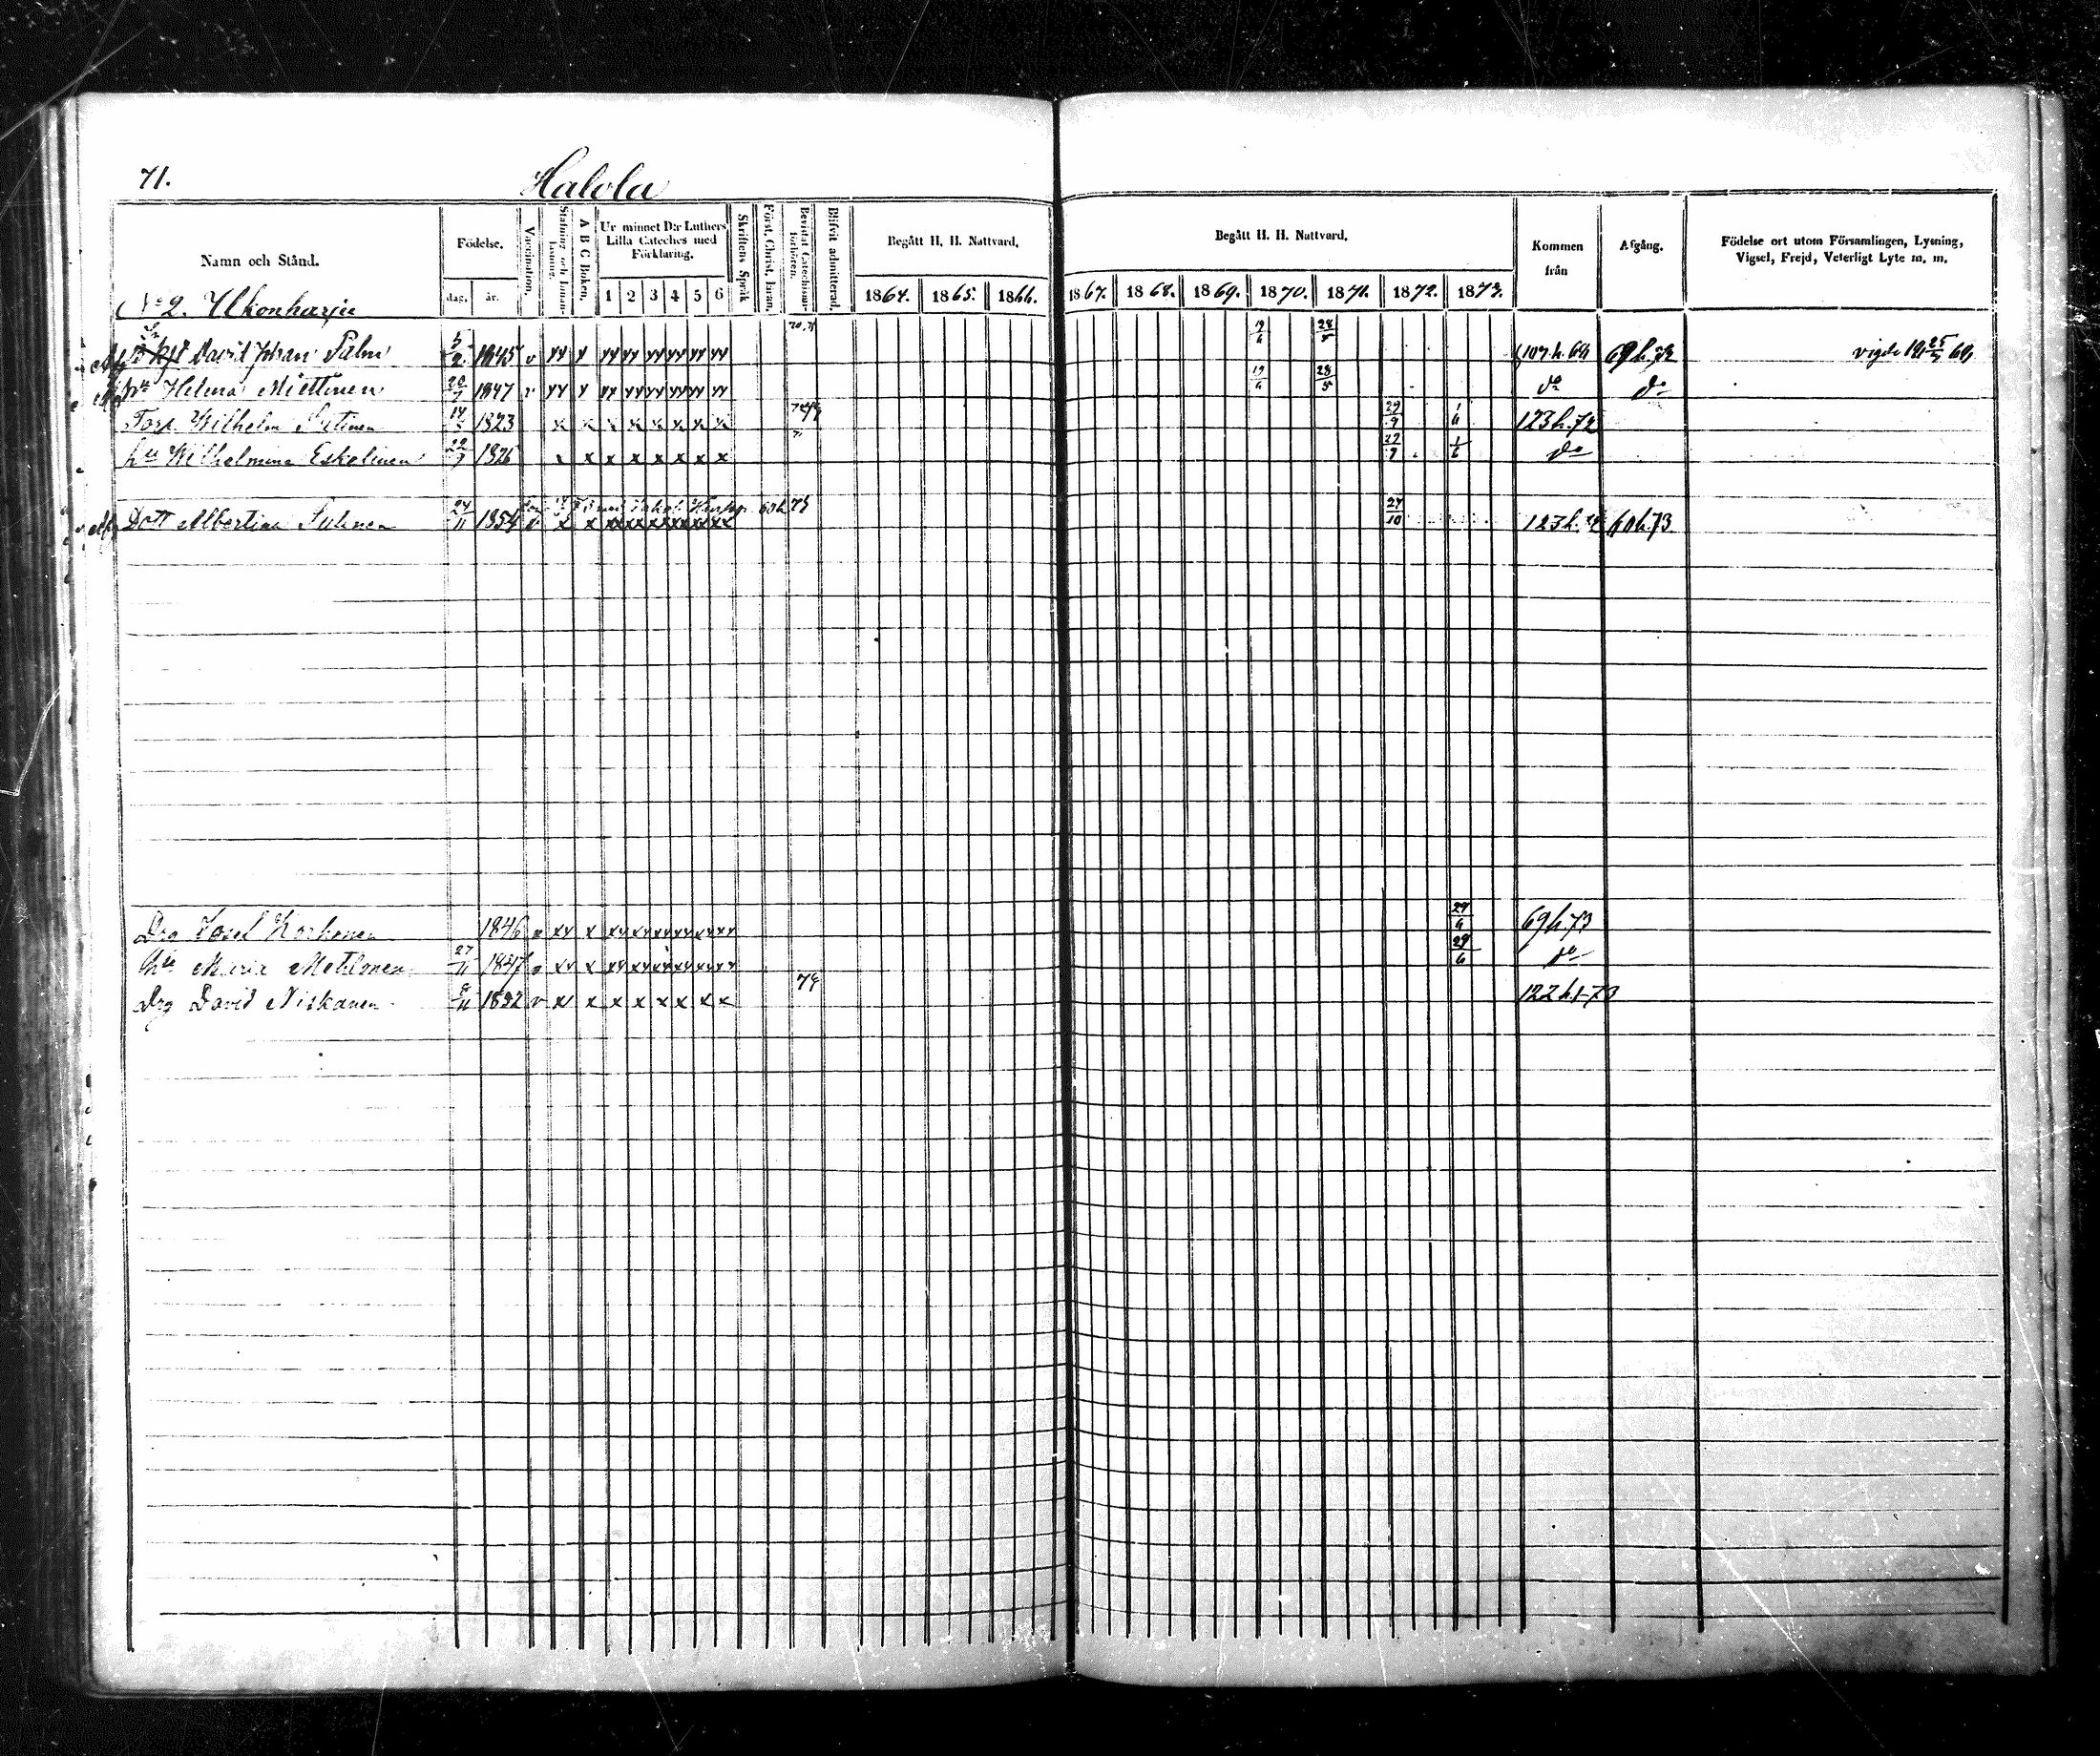 71.
Halola
Namn och Stånd.
Födelse.
dag.
år.
Vaccination.
Stafning och Innanläsning.
A B C Boken.
Ur minnet D:r Luthers Lilla Cateches med Förklaring.
1 2 3 4 5 6
Skriftens Språk
Först. Christ. läran.
Bevistat Catechismiförhören.
Blifvit admitterad.
Begått H. H. Nattvard.
1864. 1865. 1866.
Begått H. H. Nattvard.
1867. 1868. 1869. 1870. 1871. 1872. 1873.
Kommen från
Afgång.
Födelse ort utom Församlingen, Lysning, Vigsel, Frejd, Veterligt Lyte m. m.
No 2. Ukonharju
David Johan Palm 5/2 1845 v yy y yy yy yy yy yy yy 19/6 28/5 107 h. 69 69 h. 72 vigde 25/5 69
Hu Helena Miettinen 20/7 1847 v yy y yy yy yy yy yy yy 19/6 28/5 do do
Torp Wilhelm Sutinen 1823 x x x x x x x x 29/9 1/6 123 h. 72
hu Wilhelmina Eskelinen 1826 x x x x x x x x 29/9 1/6 do
Dott Albertina Sutinen 24/11 1854 v x x xx xx xx xx xx xx 60 h 73 27/10 123 h. 60 h. 73
Drg Josef Korhonen 1846 v xy x xy xy xy xy xy xy 29/6 69 h. 73
hu Maria Mehtonen 27/11 1847 v xy x xy xy xy xy xy xy 29/6 do
Drg David Niskanen 8/11 1832 v x x x x x x x x 122 h. 73